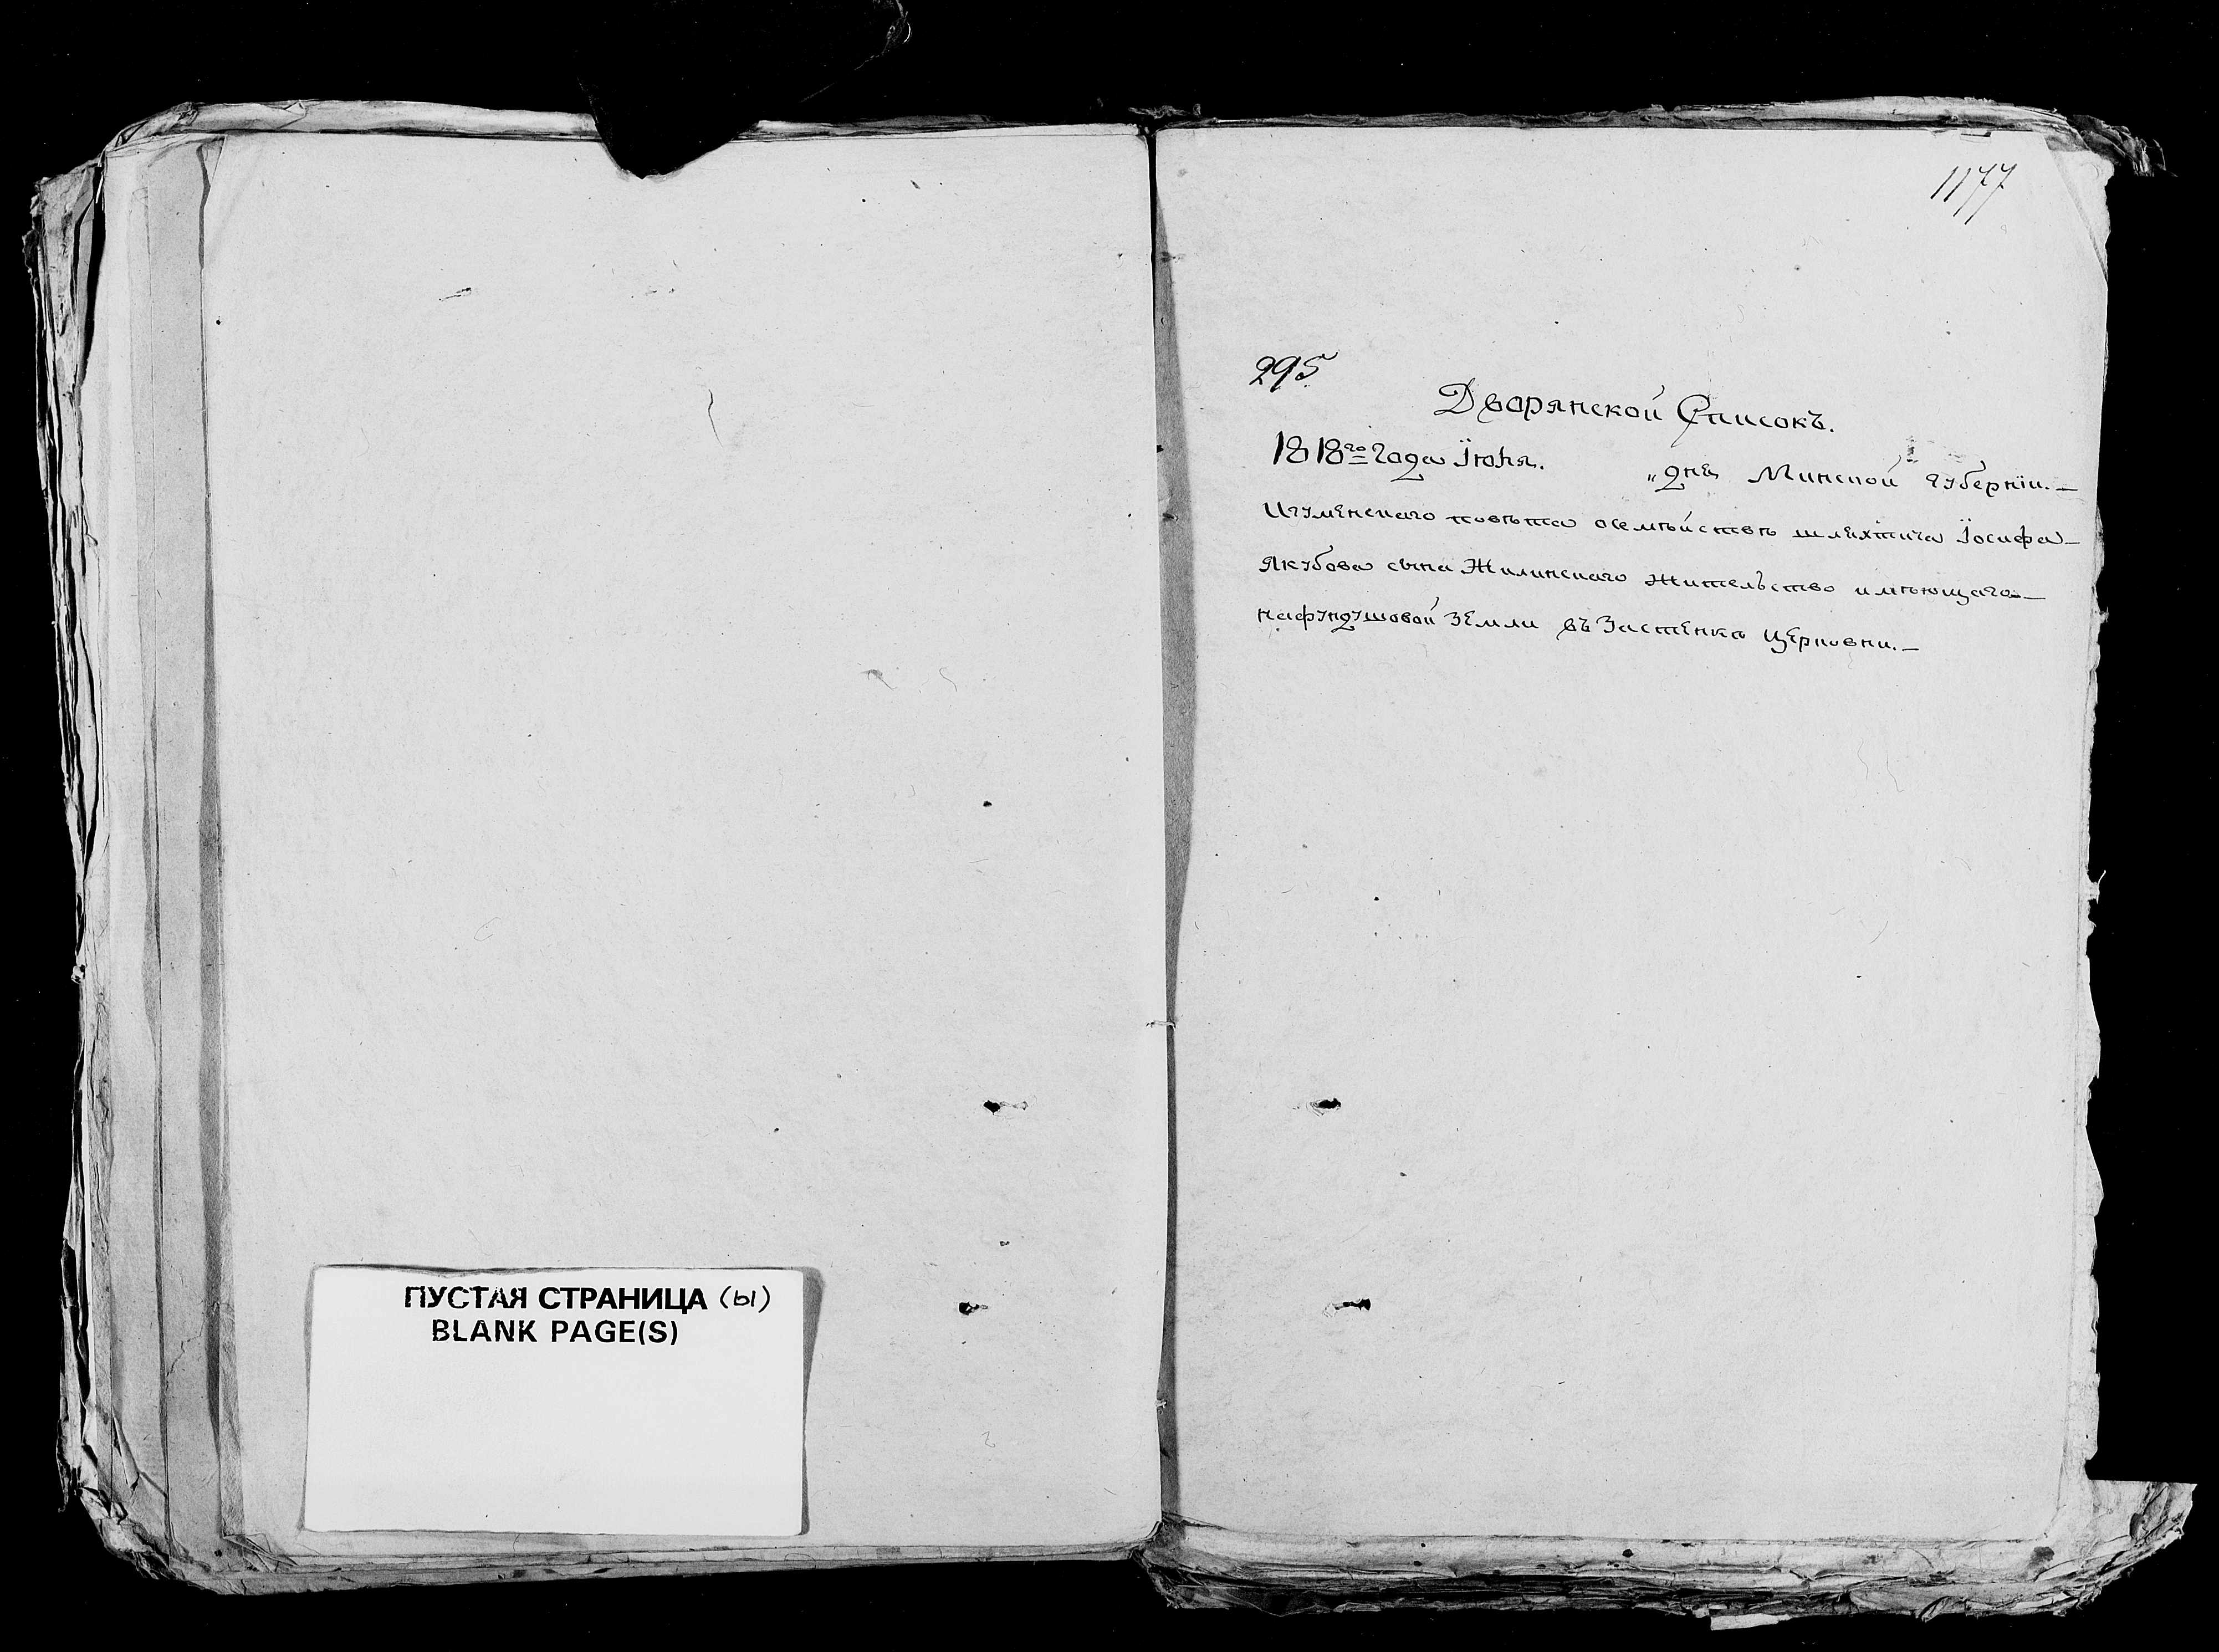 ПУСТАЯ СТРАНИЦА (Ы)
BLANK PAGE(S)
1177
295
Дворянской Списокъ.
1818го года Їюня. „дня Минской Губернїи.—
Игуменскаго повѣта осемѣйствѣ шляхтича Їосифа—
Якубова сына Жилинскаго жительство имѣющаго—
нафундушовой земли въ Застенкѣ Церковни.—